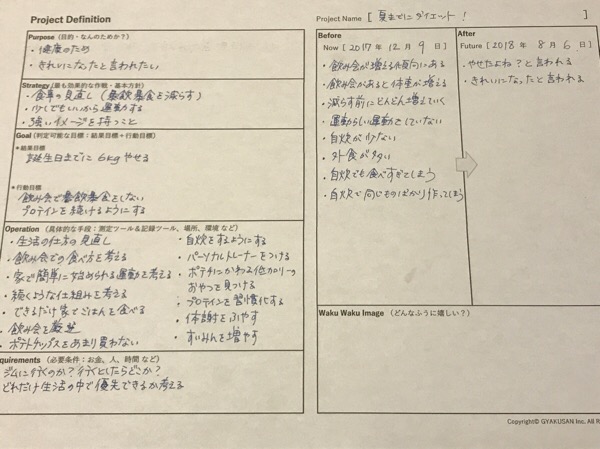 Project Definition
Purpose（目的・なんのためか？）
・健康のため
・きれいになったと言われたい
Strategy（最も効果的な作戦・基本方針）
・食事の見直し（暴飲暴食を減らす）
・少しでもいいから運動する
・強いイメージを持つこと
Goal（判定可能な目標：結果目標＋行動目標）
●結果目標
誕生日までに 6kg やせる
●行動目標
飲み会で暴飲暴食をしない
プロテインを続けるようにする
Operation（具体的な手段：測定ツール＆記録ツール、場所、環境 など）
・生活の仕方の見直し
・飲み会での食べ方を考える
・家で簡単に始められる運動を考える
・続くような仕組みを考える
・できるだけ家でごはんを食べる
・飲み会を厳選
・ポテトチップスをあまり買わない
・自炊をするようにする
・パーソナルトレーナーをつける
・ポテチにかわる低カロリーの
おやつを見つける
・プロテインを習慣化する
・体謝をふやす
・すいみんを増やす
quirements（必要条件：お金、人、時間 など）
ジムに行くのか？行くとしたらどこか？
どれだけ生活の中で優先できるか考える
Project Name [ 夏までにダイエット！ ]
Before
Now [ 2017 年 12 月 9 日 ]
・飲み会が増える傾向にある
・飲み会があると体重が増える
・減らす前にどんどん増えていく
・運動らしい運動をしていない
・自炊が少ない
・外食が多い
・自炊でも食べすぎてしまう
・自炊で同じものばかり作ってしまう
After
Future [ 2018 年 8 月 6 日 ]
・やせたよね？と言われる
・きれいになったと言われる
Waku Waku Image（どんなふうに嬉しい？）
Copyright© GYAKUSAN Inc. All R